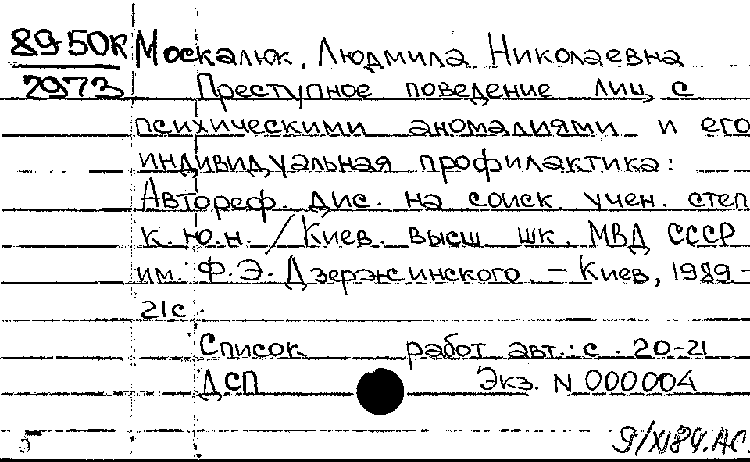 89-50к Москалюк, Людмила Николаевна
7973 Преступное поведение лиц с
психическими аномалиями и его
индивидуальная профилактика:
Автореф. дис. на соиск. учен. степ
к.ю.н. / Киев. высш шк. МВД СССР
им. Ф.Э. Дзержинского. – Киев, 1989 –
21с.
Список работ авт.: с. 20-21
ДСП Экз. N 000004
5